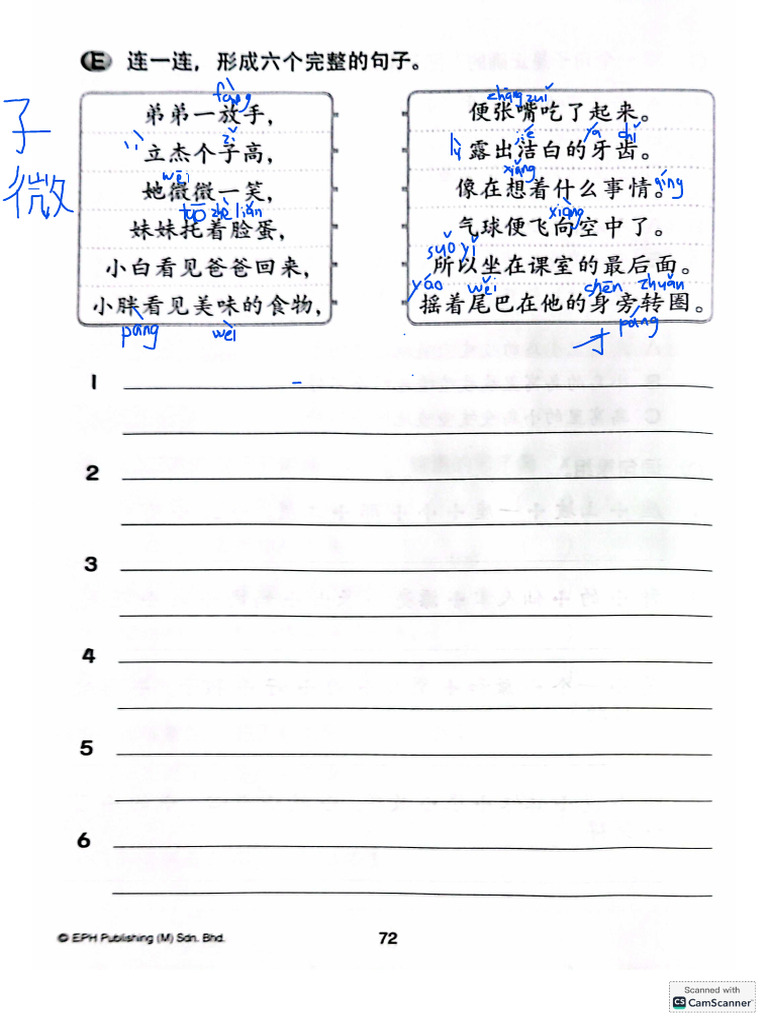 E 连一连，形成六个完整的句子。
fàng
弟弟一放手，
lì zǐ
立杰个子高，
wēi
她微微一笑，
tuō zhe liǎn
妹妹托着脸蛋，
小白看见爸爸回来，
小胖看见美味的食物，
pàng wèi
子
微
zhāng zuǐ
便张嘴吃了起来。
lù jié yá chǐ
露出洁白的牙齿。
xiǎng qíng
像在想着什么事情。
xiàng
气球便飞向空中了。
suǒ yǐ
所以坐在课室的最后面。
yáo wěi shēn zhuàn
摇着尾巴在他的身旁转圈。
páng
1
2
3
4
5
6
© EPH Publishing (M) Sdn. Bhd.
72
Scanned with
CS CamScanner